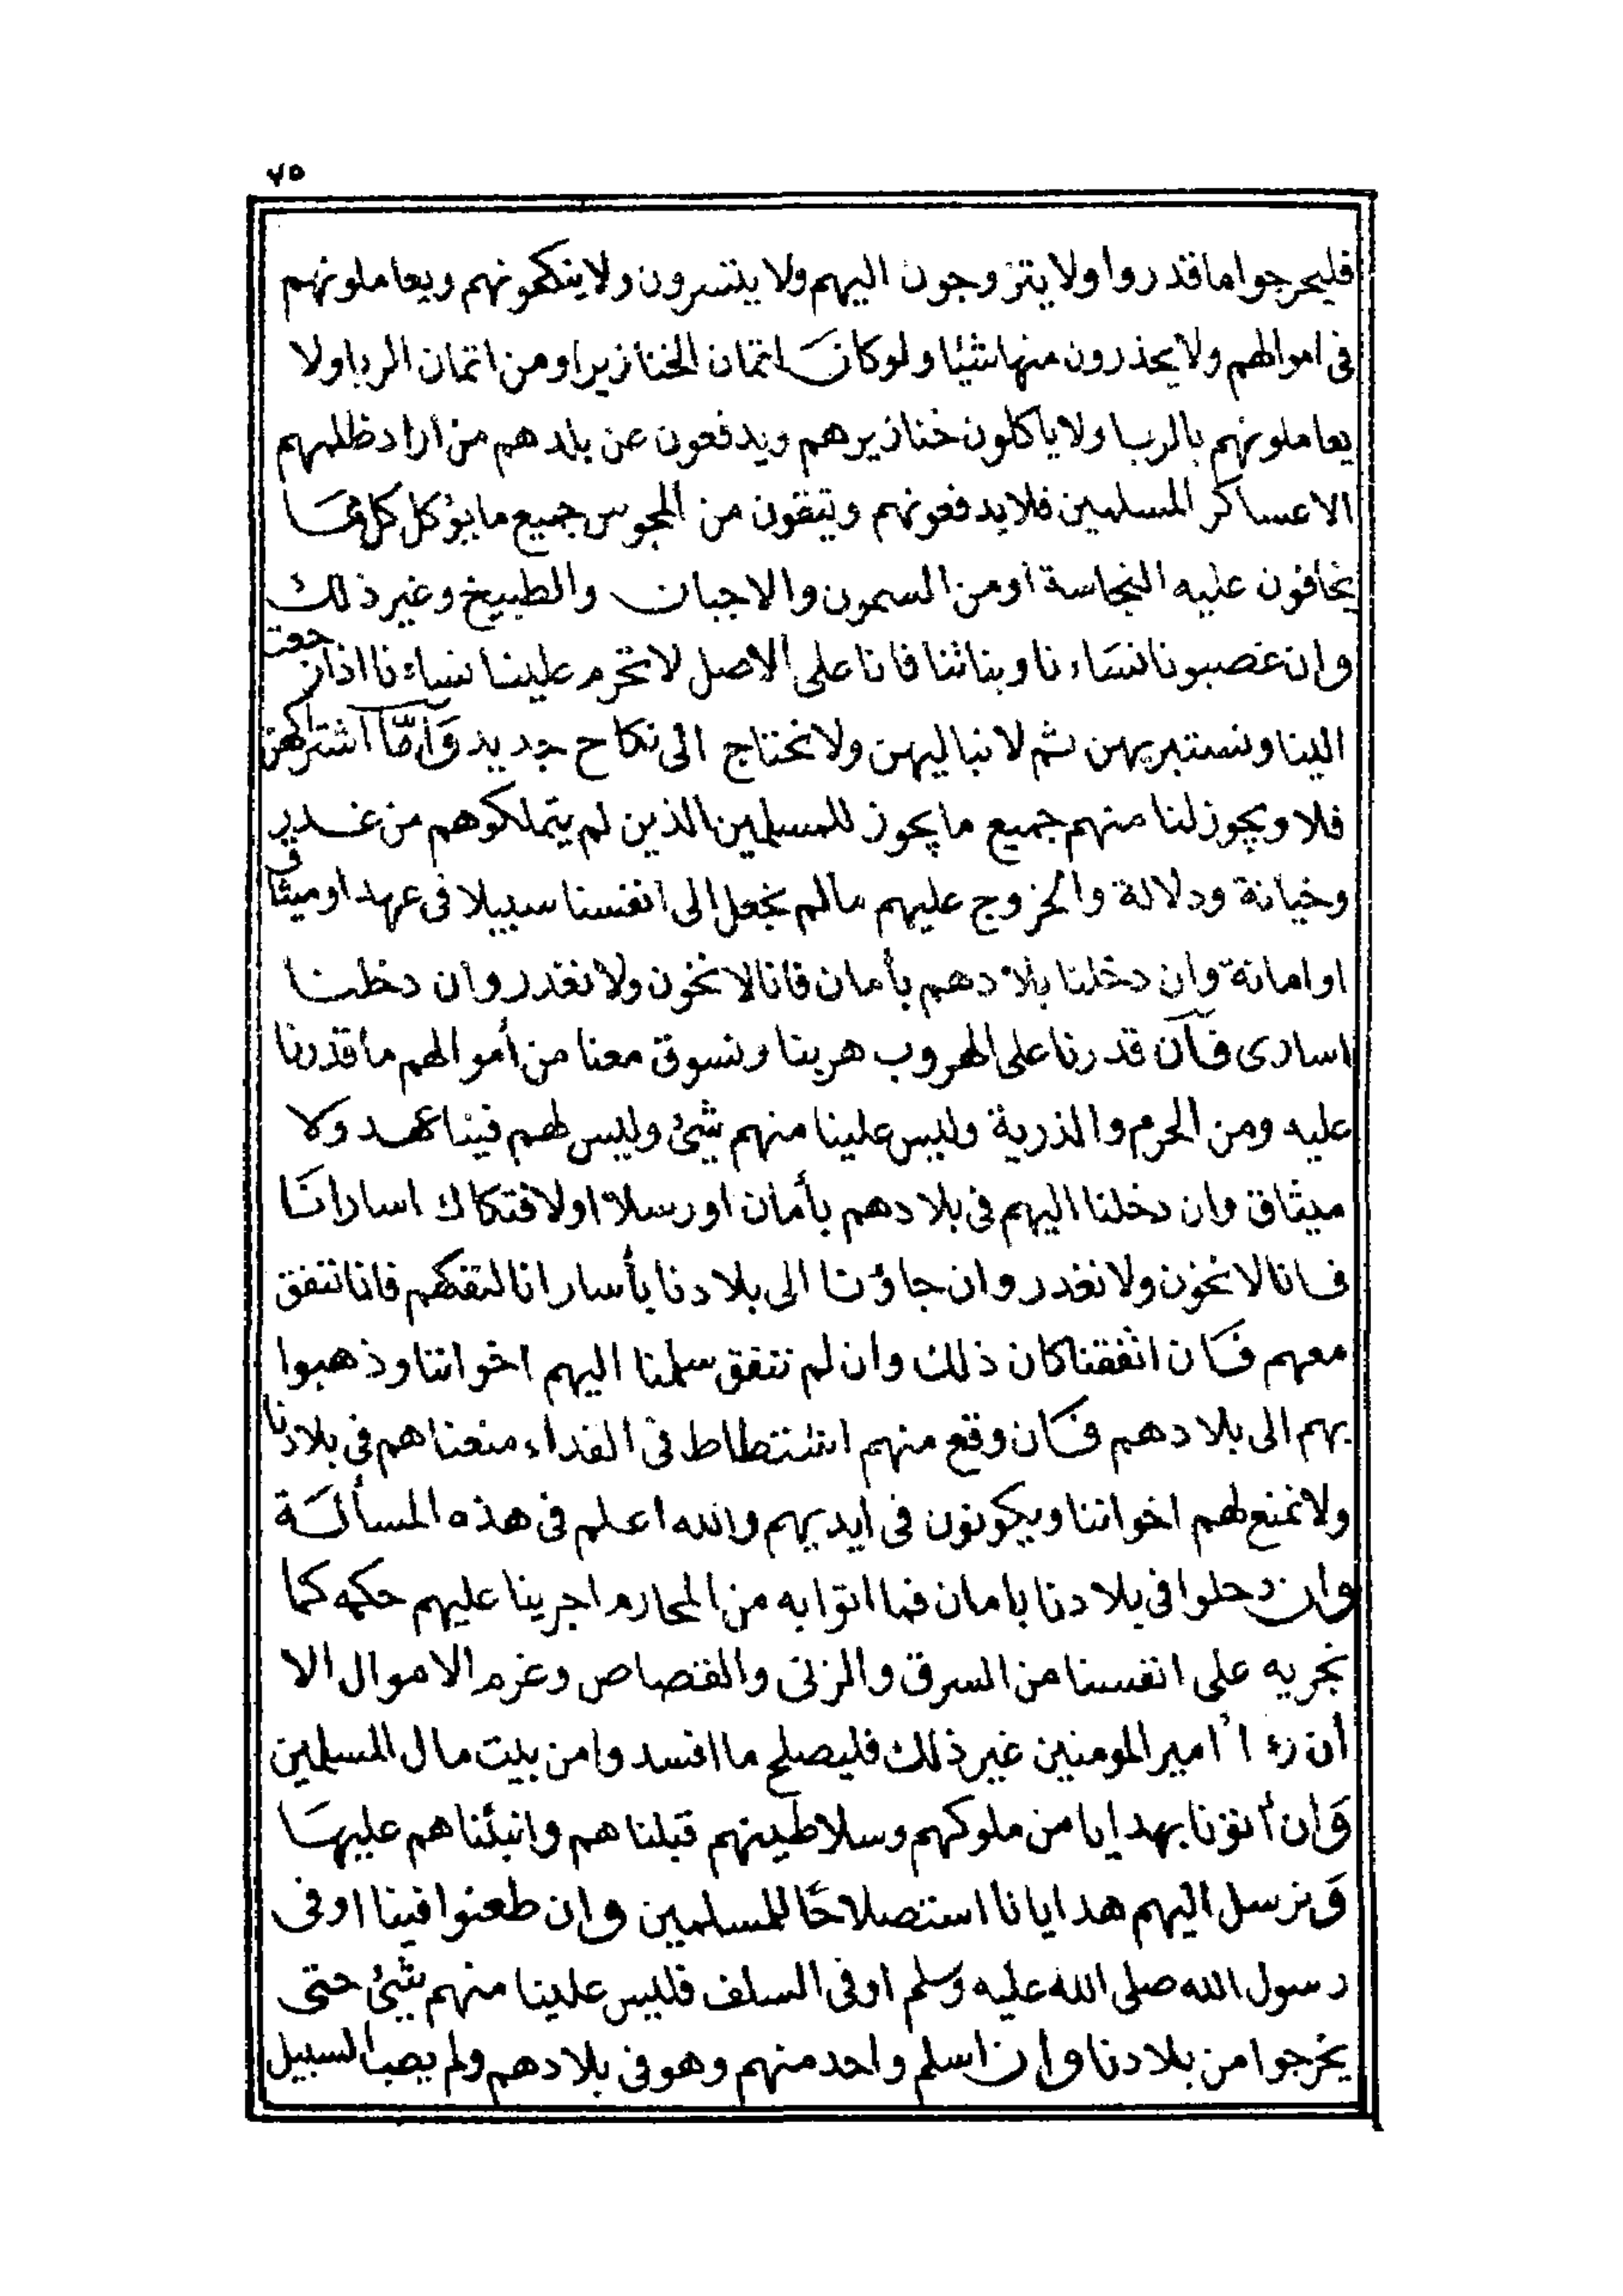 ٧٥
فليحرجوا ما قدروا ولا يتزوجون اليهم ولا يتسرون ولا ينكحونهم ويعاملونهم
فى اموالهم ولا يحذرون منها شيئا ولو كانت اثمان الخنازير او من اثمان الربا ولا
يعاملونهم بالربا ولا ياكلون خنازيرهم ويدفعون عن بلدهم من اراد ظلمهم
الا عساكر المسلمين فلا يدفعونهم ويتقون من المجوس جميع ما يؤكل كل مما
يخافون عليه النجاسة او من السمون والاجبان والطبيخ وغير ذلك
وان غصبونا نساءنا وبناتنا فانا على الاصل لا تحرم علينا نساءنا اذا رجعت
الينا ونستبريهن ثم لا نبا ليهن ولا نحتاج الى نكاح جديد وَأمّا اشتراكهن
فلا ويجوز لنا منهم جميع ما يجوز للمسلمين الذين لم يتملكوهم من غدر
وخيانة ودلالة والخروج عليهم ما لم نجعل الى انفسنا سبيلا فى عهد او ميثاق
او امانة وان دخلنا بلادهم بأمان فانا لا نخون ولا نغدر وان دخلنا
اسارى فان قدرنا على الهروب هربنا ونسوق معنا من أموالهم ما قدرنا
عليه ومن الحرم والذرية وليس علينا منهم شئ وليس لهم فينا عهد ولا
ميثاق وان دخلنا اليهم فى بلادهم بأمان او رسلا او لافتكاك اسارانا
فانا لا نخون ولا نغدر وان جاؤنا الى بلادنا بأسارانا لنفكهم فانا نتفق
معهم فان اتفقنا كان ذلك وان لم نتفق سلمنا اليهم اخواننا وذهبوا
بهم الى بلادهم فان وقع منهم اشتطاط فى الفداء منعناهم فى بلادنا
ولا نمنع لهم اخواننا ويكونون فى ايديهم والله اعلم فى هذه المسألة
وان دحلوا فى بلادنا بامان فما اتوا به من المحارم اجرينا عليهم حكمه كما
نجريه على انفسنا من السرق والزنى والقصاص وغرم الاموال الا
أن رءا امير المومنين غير ذلك فليصلح ما افسدوا من بيت مال المسلمين
وَان أتونا بهدايا من ملوكهم وسلاطينهم قبلناهم واثبناهم عليها
وَنرسل اليهم هدايانا استصلاحًا للمسلمين وان طعنوا فينا او فى
رسول الله صلى الله عليه وسلم او فى السلف فليس علينا منهم شئ حتى
يخرجوا من بلادنا وان اسلم واحد منهم وهو فى بلادهم ولم يصب السبيل